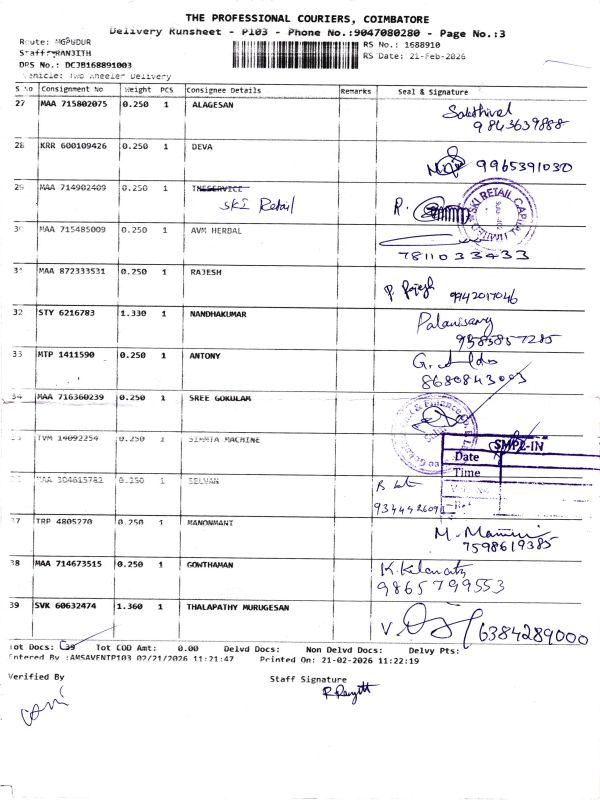 THE PROFESSIONAL COURIERS, COIMBATORE
Delivery Runsheet - P103 - Phone No.:9047080280 - Page No.:3
Route: MGPUDUR
Staff:RANJITH
DRS No.: DCJB168891003
Vehicle: Two Wheeler Delivery
RS No.: 1688910
RS Date: 21-Feb-2026
S No Consignment No Weight PCS Consignee Details Remarks Seal & Signature
27 MAA 715802075 0.250 1 ALAGESAN Sakthivel
9843639888
28 KRR 600109426 0.250 1 DEVA 9965391030
29 MAA 714902409 0.250 1 THESERVICE
SKI Retail R.
SKI RETAIL CAPITAL LIMITED
30 MAA 715485009 0.250 1 AVM HERBAL
7811033433
31 MAA 872333531 0.250 1 RAJESH
P. Rajesh 9942017046
32 STY 6216783 1.330 1 NANDHAKUMAR Palanisamy
9585857285
33 MTP 1411590 0.250 1 ANTONY G.
8680843003
34 MAA 716360239 0.250 1 SREE GOKULAM
35 TVM 14092254 0.250 1 SIMMTA MACHINE SMPL-IN
Date
Time
36 MAA 304615782 0.250 1 SELVAN
37 TRP 4805270 0.250 1 MANONMANI M.
7598619385
38 MAA 714673515 0.250 1 GOWTHAMAN K.
9865799553
39 SVK 60632474 1.360 1 THALAPATHY MURUGESAN V. 6384289000
Tot Docs: 39 Tot COD Amt: 0.00 Delvd Docs: Non Delvd Docs: Delvy Pts:
Entered By :AMSAVENIP103 02/21/2026 11:21:47 Printed On: 21-02-2026 11:22:19
Verified By Staff Signature